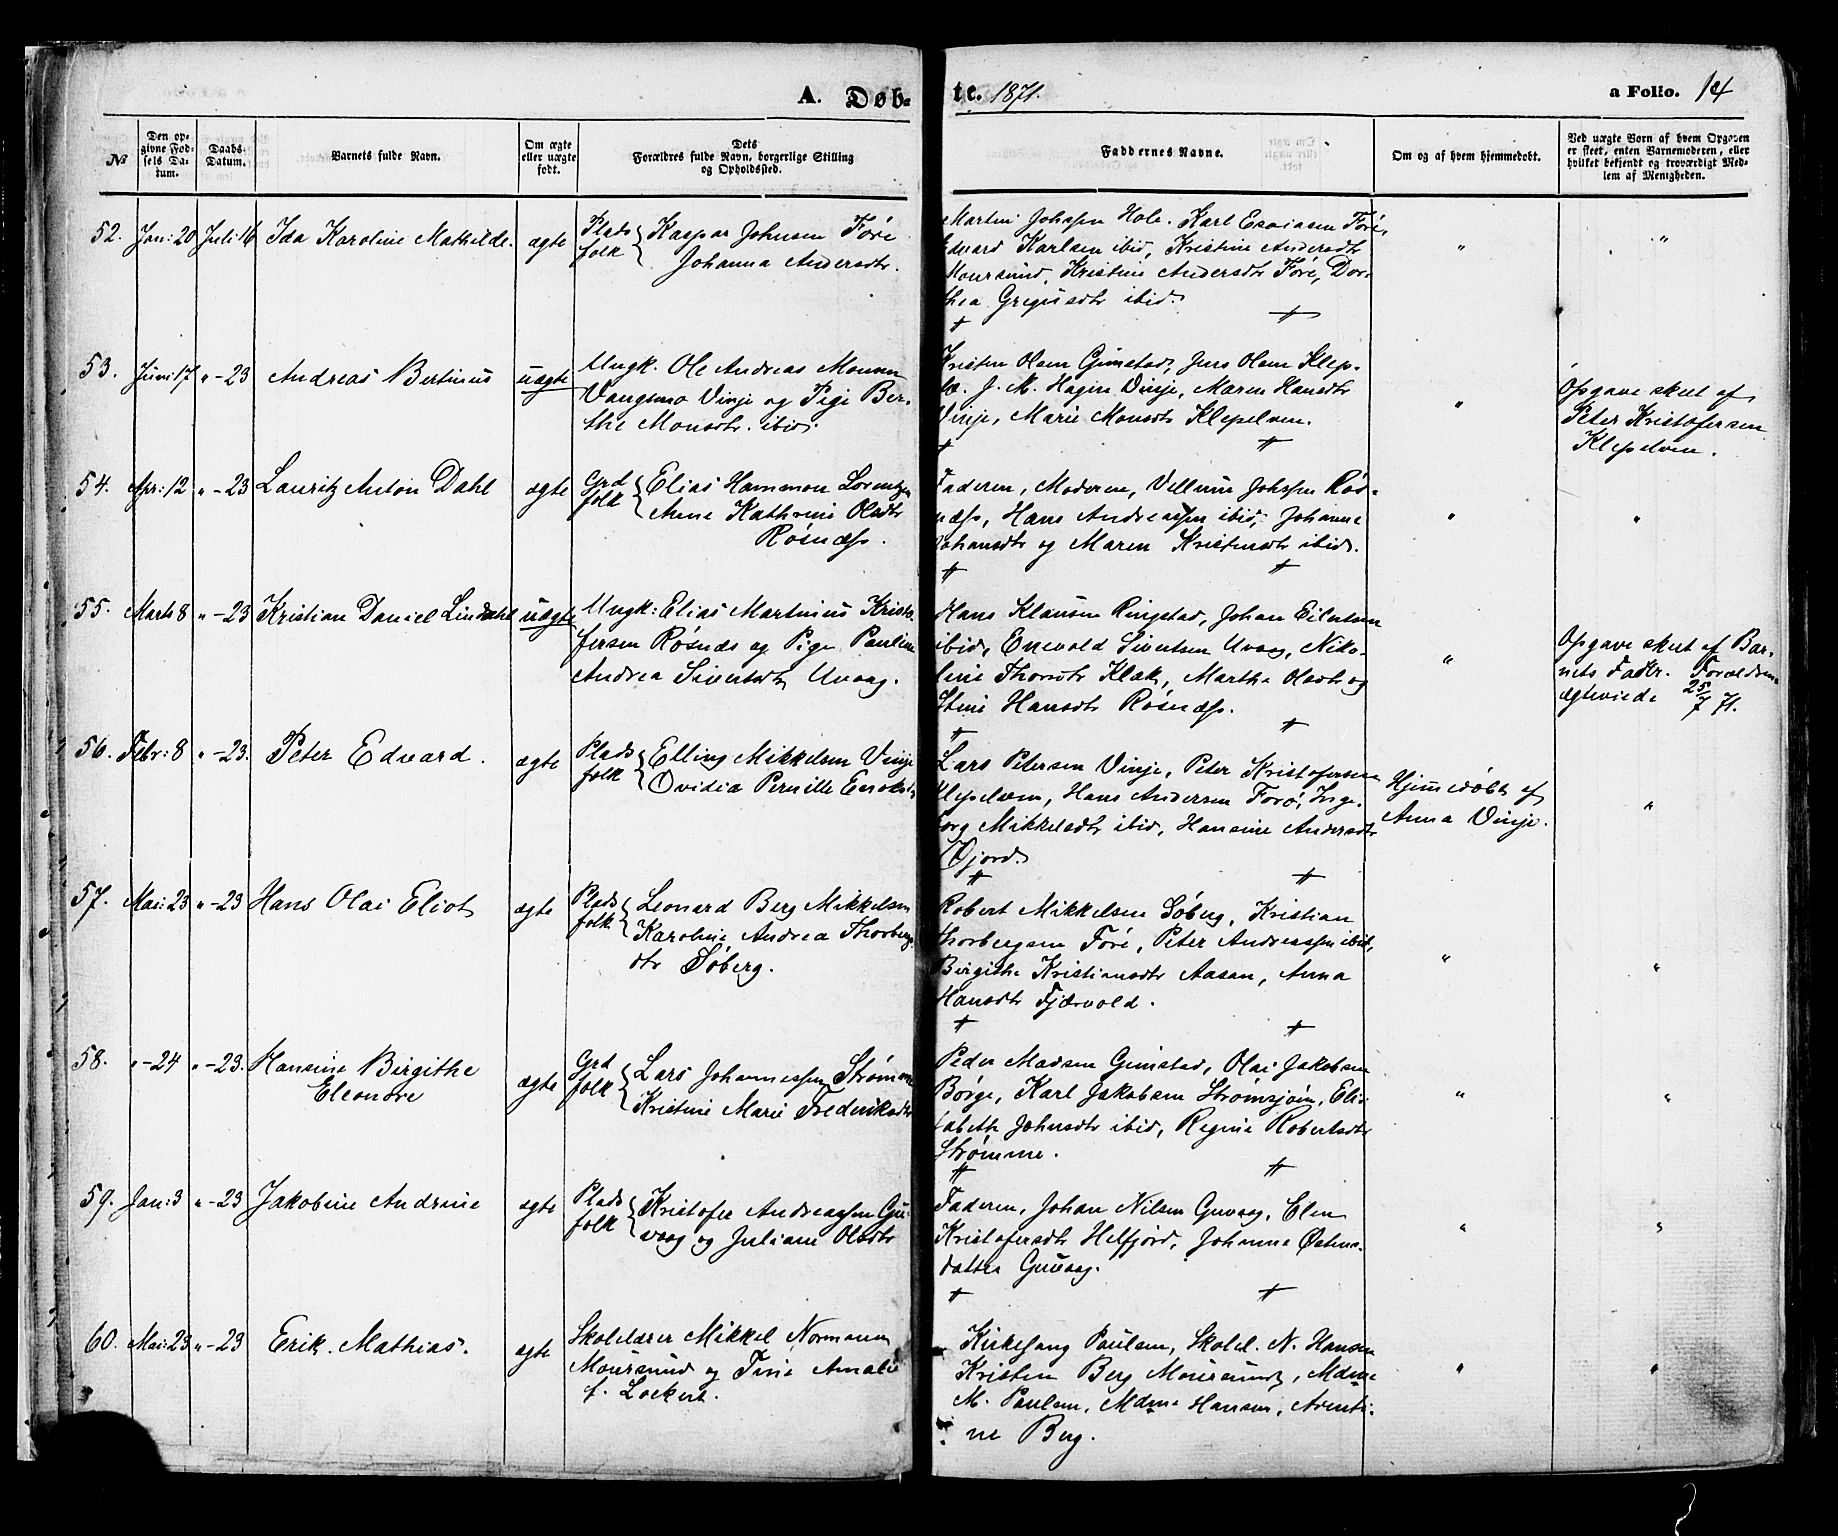 A. Døb-
te. 1871.
a Folio. 14
No
Den op-
givne Fød-
sels Da-
tum.
Daabs-
Datum.
Barnets fulde Navn.
Om ægte
eller uægte
født.
Dets
Forældres fulde Navn, borgerlige Stilling
og Opholdssted.
Faddernes Navne.
Om og af hvem hjemmedøbt.
Ved uægte Børn af hvem Opgaven
er skeet, enten Barnemoderen, eller
hvilket bekjendt og troværdigt Med-
lem af Menigheden.
52. Jan: 20 Juli: 16 Ida Karoline Mathilde. ægte
Plads
folk
Kaspar Johnsen Føre
Johanna Andersdtr.
Martin Johssen Hole. Karl Esaiasen Føre,
Edvard Karlsen ibid, Kristine Andersdtr
Moursund, Kristine Andersdtr Føre, Doro
thea Gregusdtr ibid.
" "
53. Juni 17 " - 23 Andreas Bertinus uægte
Ungk. Ole Andreas Monsen
Vangsmo Vinje og Pige Ber-
the Monsdtr. ibid.
Kristen Olsen Gimstad, Jens Olsen Klep-
J. M. Hagen Vinje, Maren Hansdtr
Vinje, Marie Monsdtr Klepelven.
"
Opgave skeet af
Peter Kristofersen
Klepelven.
54. Apr: 12 " - 23 Lauritz Anton Dahl ægte
Grd
folk
Elias Hammon Lorentzen
Anne Kathrine Olsdtr
Røsnæss.
Faderen, Moderen, Villum Johssen Røs-
næss, Hans Andreassen ibid, Johanne
Johansdtr og Maren Kristensdtr ibid.
" "
55. Marts 8 " - 23 Kristian Daniel Lindahl uægte
Ungk: Elias Martinius Kristo-
fersen Røsnæs og Pige Pauline
Andrea Sivertsdtr Uvaag.
Hans Klausen Ringstad, Johan Eilertsen
ibid, Enevold Sivertsen Uvaag, Niko-
line Thorsdtr Klak, Martha Olsdtr og
Stine Hansdtr Røsnæss.
"
Opgave skeet af Bar-
nets Fader. Forældrene
ægteviede 25/7 71.
56. Febr: 8 " - 23. Peter Edvard. ægte
Plads
folk
Elling Mikkelsen Vinje
Ovidia Pernille Enoksdtr
Lars Petersen Vinje, Peter Kristofersen
Klepelven, Hans Andersen Forø, Inge-
borg Mikkelsdtr ibid, Hansine Andersdtr
Øjord.
Hjemmedøbt af
Anna Vinje.
"
57. Mai: 23 " - 23 Hans Olai Eliot ægte
Plads
folk
Leonard Berg Mikkelsen
Karoline Andrea Thorbergs
dtr Søberg.
Robert Mikkelsen Søberg, Kristian
Thorbergsen Føre, Peter Andreassen ibid,
Birgithe Kristiansdtr Aasan, Anna
Hansdtr Fjærvold.
" "
58. " - 24 " - 23. Hansine Birgithe
Eleonore
ægte
Grd
folk
Lars Johannessen Strømme
Kristine Marie Frederiksdtr
Peder Madsen Gimstad, Olai Jakobsen
Børge, Karl Jakobsen Strømsjøin, Elis
abeth Johnsdtr ibid, Regine Robertsdtr
Strømme.
" "
59. Jan: 3 " - 23 Jakobine Andrine ægte
Plads
folk
Kristofer Andreassen Gu-
vaag og Juliane Olsdtr
Faderen, Johan Nilsen Guvaag, Elen
Kristofersdtr Helfjord, Johanne Østens-
datter Guvaag.
" "
60. Mai: 23 " - 23 Erik Mathias. ægte
Skolelærer Mikkel Normann
Moursund og Trine Amalie
f. Lockert.
Kirkesang Paulsen, Skolel. N. Hansen
Kristen Berg Moursund, Mdme
M. Paulsen, Mdme Hansen, Arenti-
ne Berg.
" "